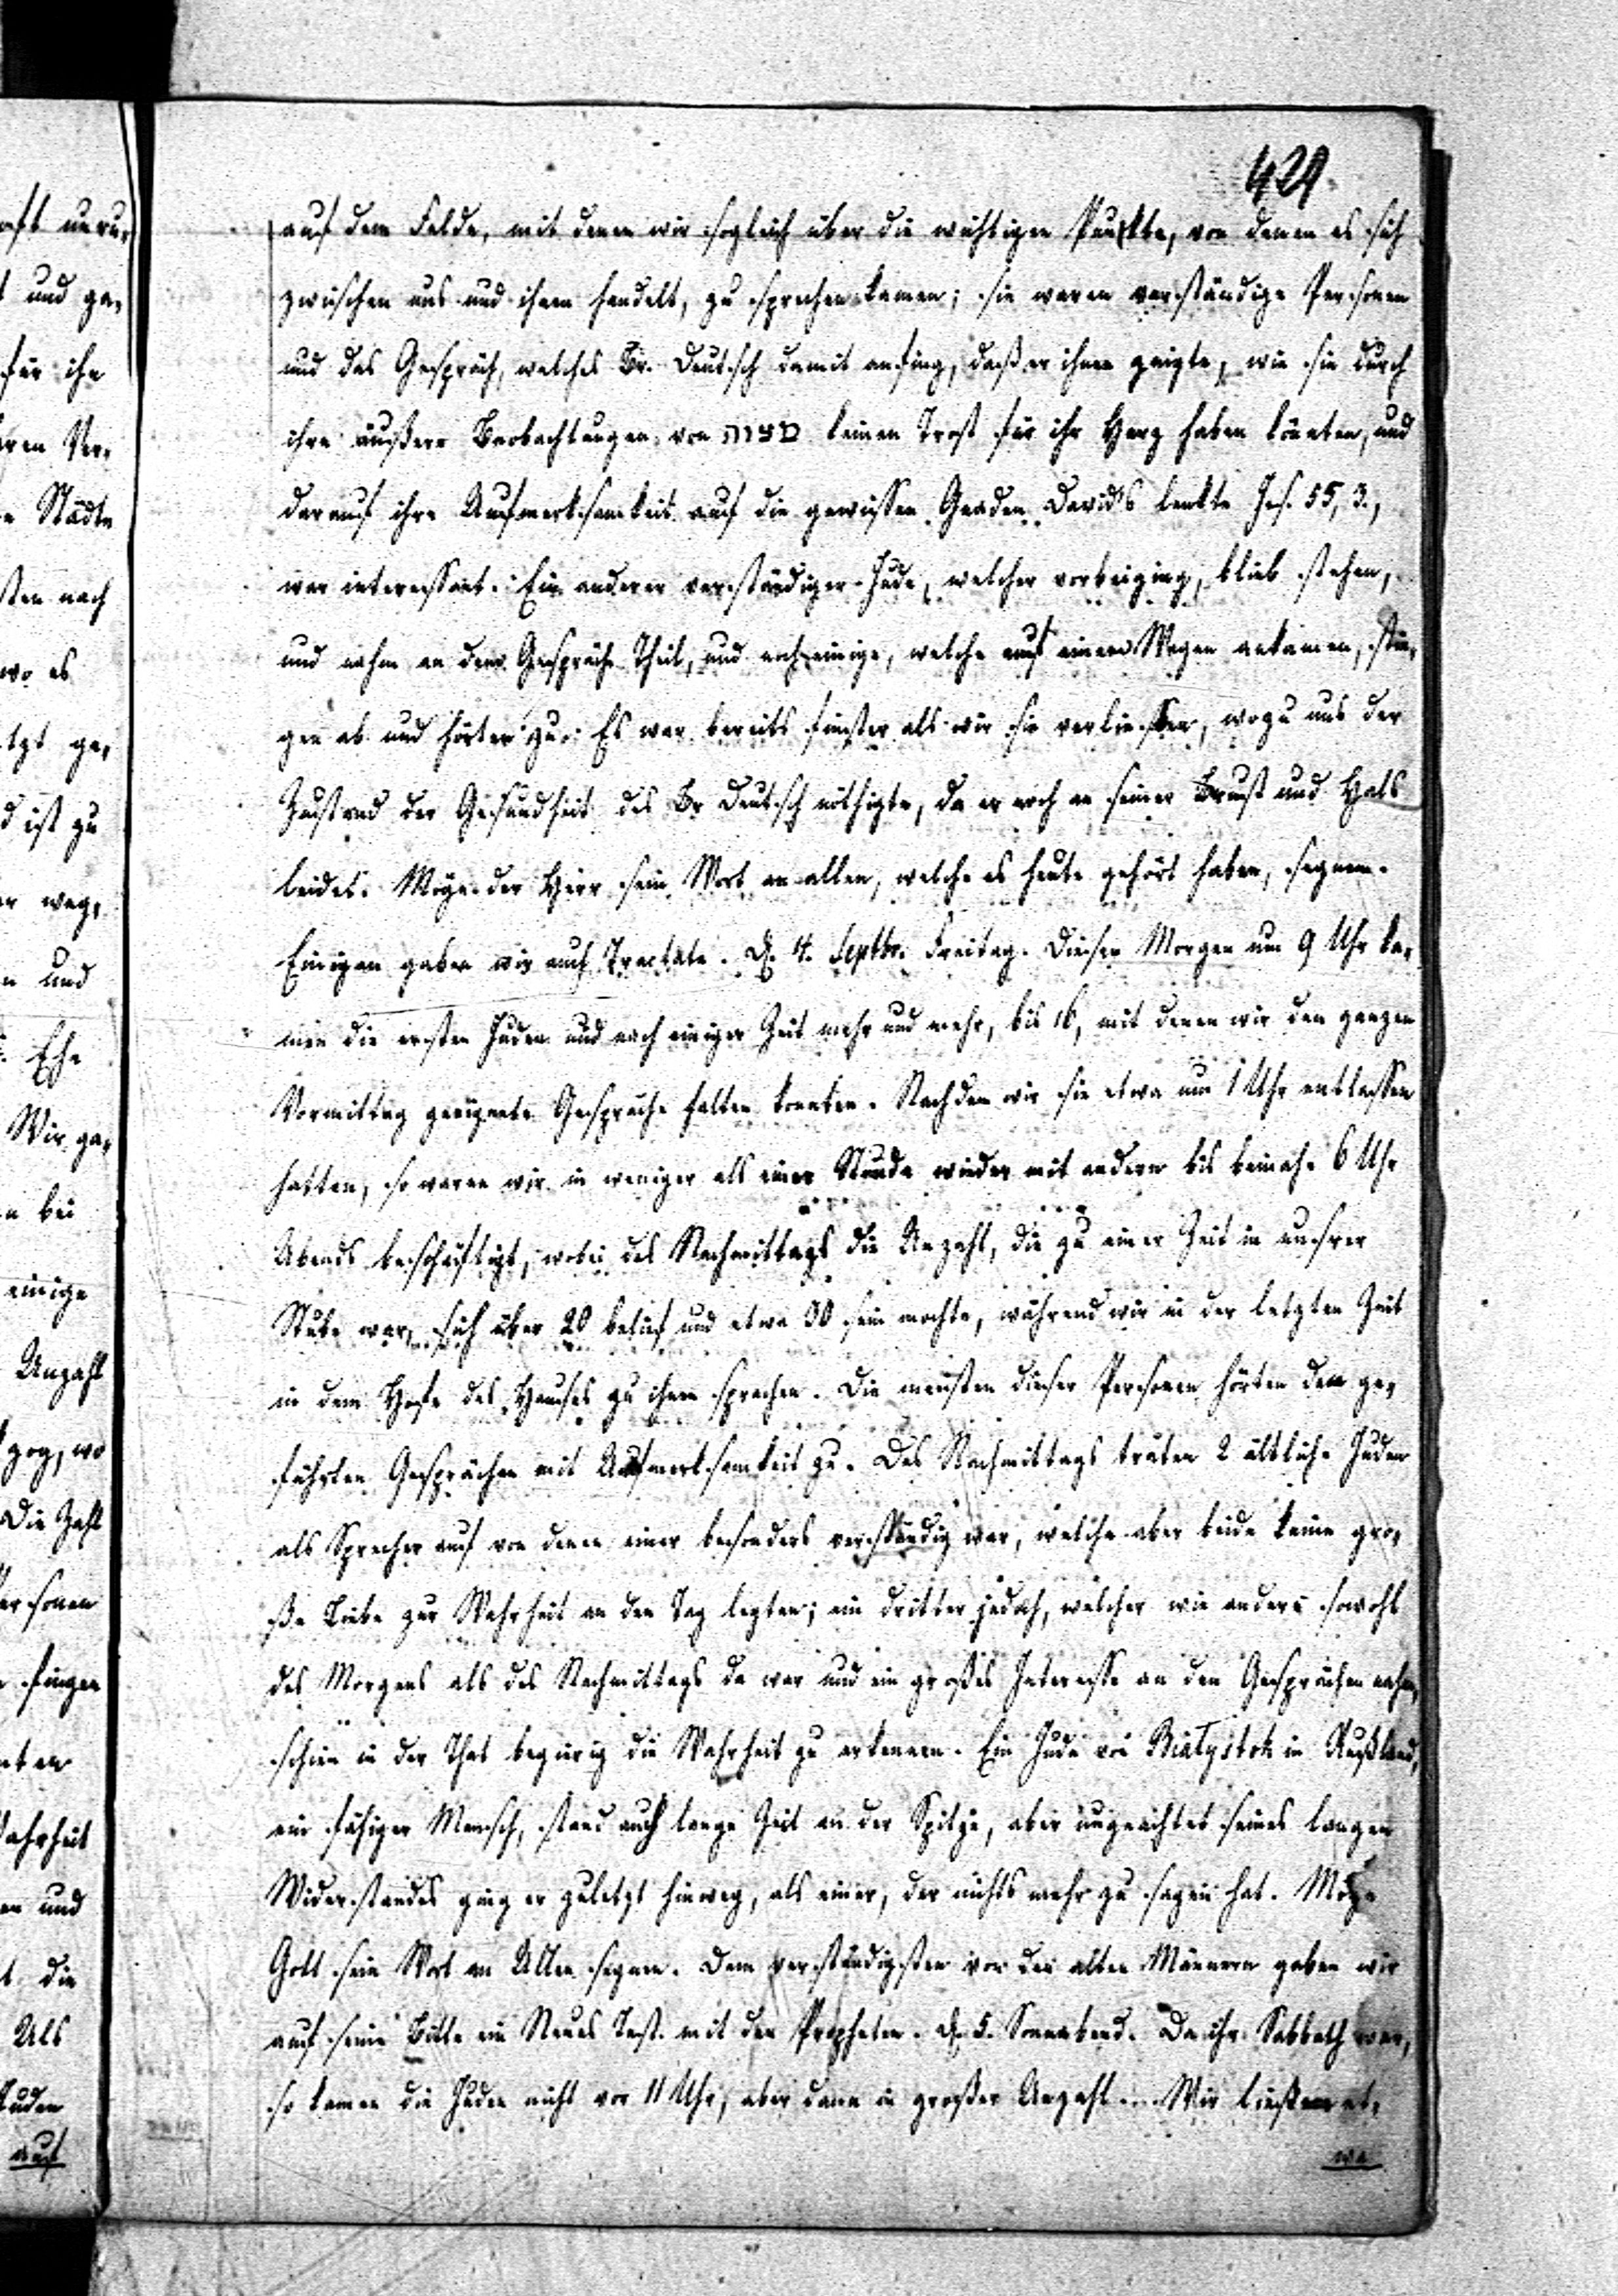 429
auf dem Felde, mit denen wir sogleich über die wichtigen Punkte, von denen es sich
zwischen uns und ihnen handelt, zu sprechen kamen; sie waren verständige Personen
und das Gespräch, welches Br. Deutsch damit anfing, daß er ihnen zeigte, wie sie durch
ihre äußere Beobachtungen von מצות keinen Trost für ihr Herz haben könnten, und
darauf ihre Aufmerksamkeit auf die gewissen Gnaden David's lenkte Jes. 55, 3.,
war interessant. Ein anderer verständiger Jude, welcher vorbeiging, blieb stehen,
und nahm an dem Gespräche Theil, und noch einige, welche auf einem Wagen ankamen, stie-
gen ab und hörten zu. Es war bereits finster als wir sie verließen, wozu uns der
Zustand der Gesundheit des Br Deutsch nöthigte, da er noch an seiner Brust und Hals
leidet. Möge der Herr sein Wort an allen, welche es heute gehört haben, segnen.
Einigen gaben wir auch Tractate. D. 4. Septbr. Freitag. Diesen Morgen um 9 Uhr ka-
men die ersten Juden und nach einiger Zeit mehr und mehr, bis 16, mit denen wir den ganzen
Vormittag geeignete Gespräche halten konnten. Nachdem wir sie etwa um 1 Uhr entlassen
hatten, so waren wir in weniger als einer Stunde wieder mit andern bis beinahe 6 Uhr
Abends beschäftigt, wobei des Nachmittags die Anzahl, die zu einer Zeit in unsrer
Stube war, sich über 20 belief und etwa 30 sein mochte, während wir in der letzten Zeit
in dem Hofe des Hauses zu ihnen sprachen. Die meisten dieser Personen hörten den ge-
führten Gesprächen mit Aufmerksamkeit zu. Des Nachmittags traten 2 ältliche Juden
als Sprecher auf von denen einer besonders verständig war, welche aber beide keine gro-
ße Liebe zur Wahrheit an den Tag legten; ein dritter jedoch, welcher wie andere sowohl
des Morgens als des Nachmittags da war und ein großes Interesse an den Gesprächen nahm,
schien in der That begierig die Wahrheit zu erkennen. Ein Jude von Białystok in Rußland,
ein fähiger Mensch, stand auch lange Zeit an der Spitze, aber ungeachtet seines langen
Widerstandes ging er zuletzt hinweg, als einer, der nichts mehr zu sagen hat. Möge
Gott sein Wort an Allen segnen. Dem verständigsten von den alten Männern gaben wir
auf seine Bitte ein Neues Test. mit den Propheten. d. 5. Sonnabend. Da ihr Sabbath war,
so kamen die Juden nicht vor 11 Uhr, aber dann in großer Anzahl. Wir ließen et-
wa